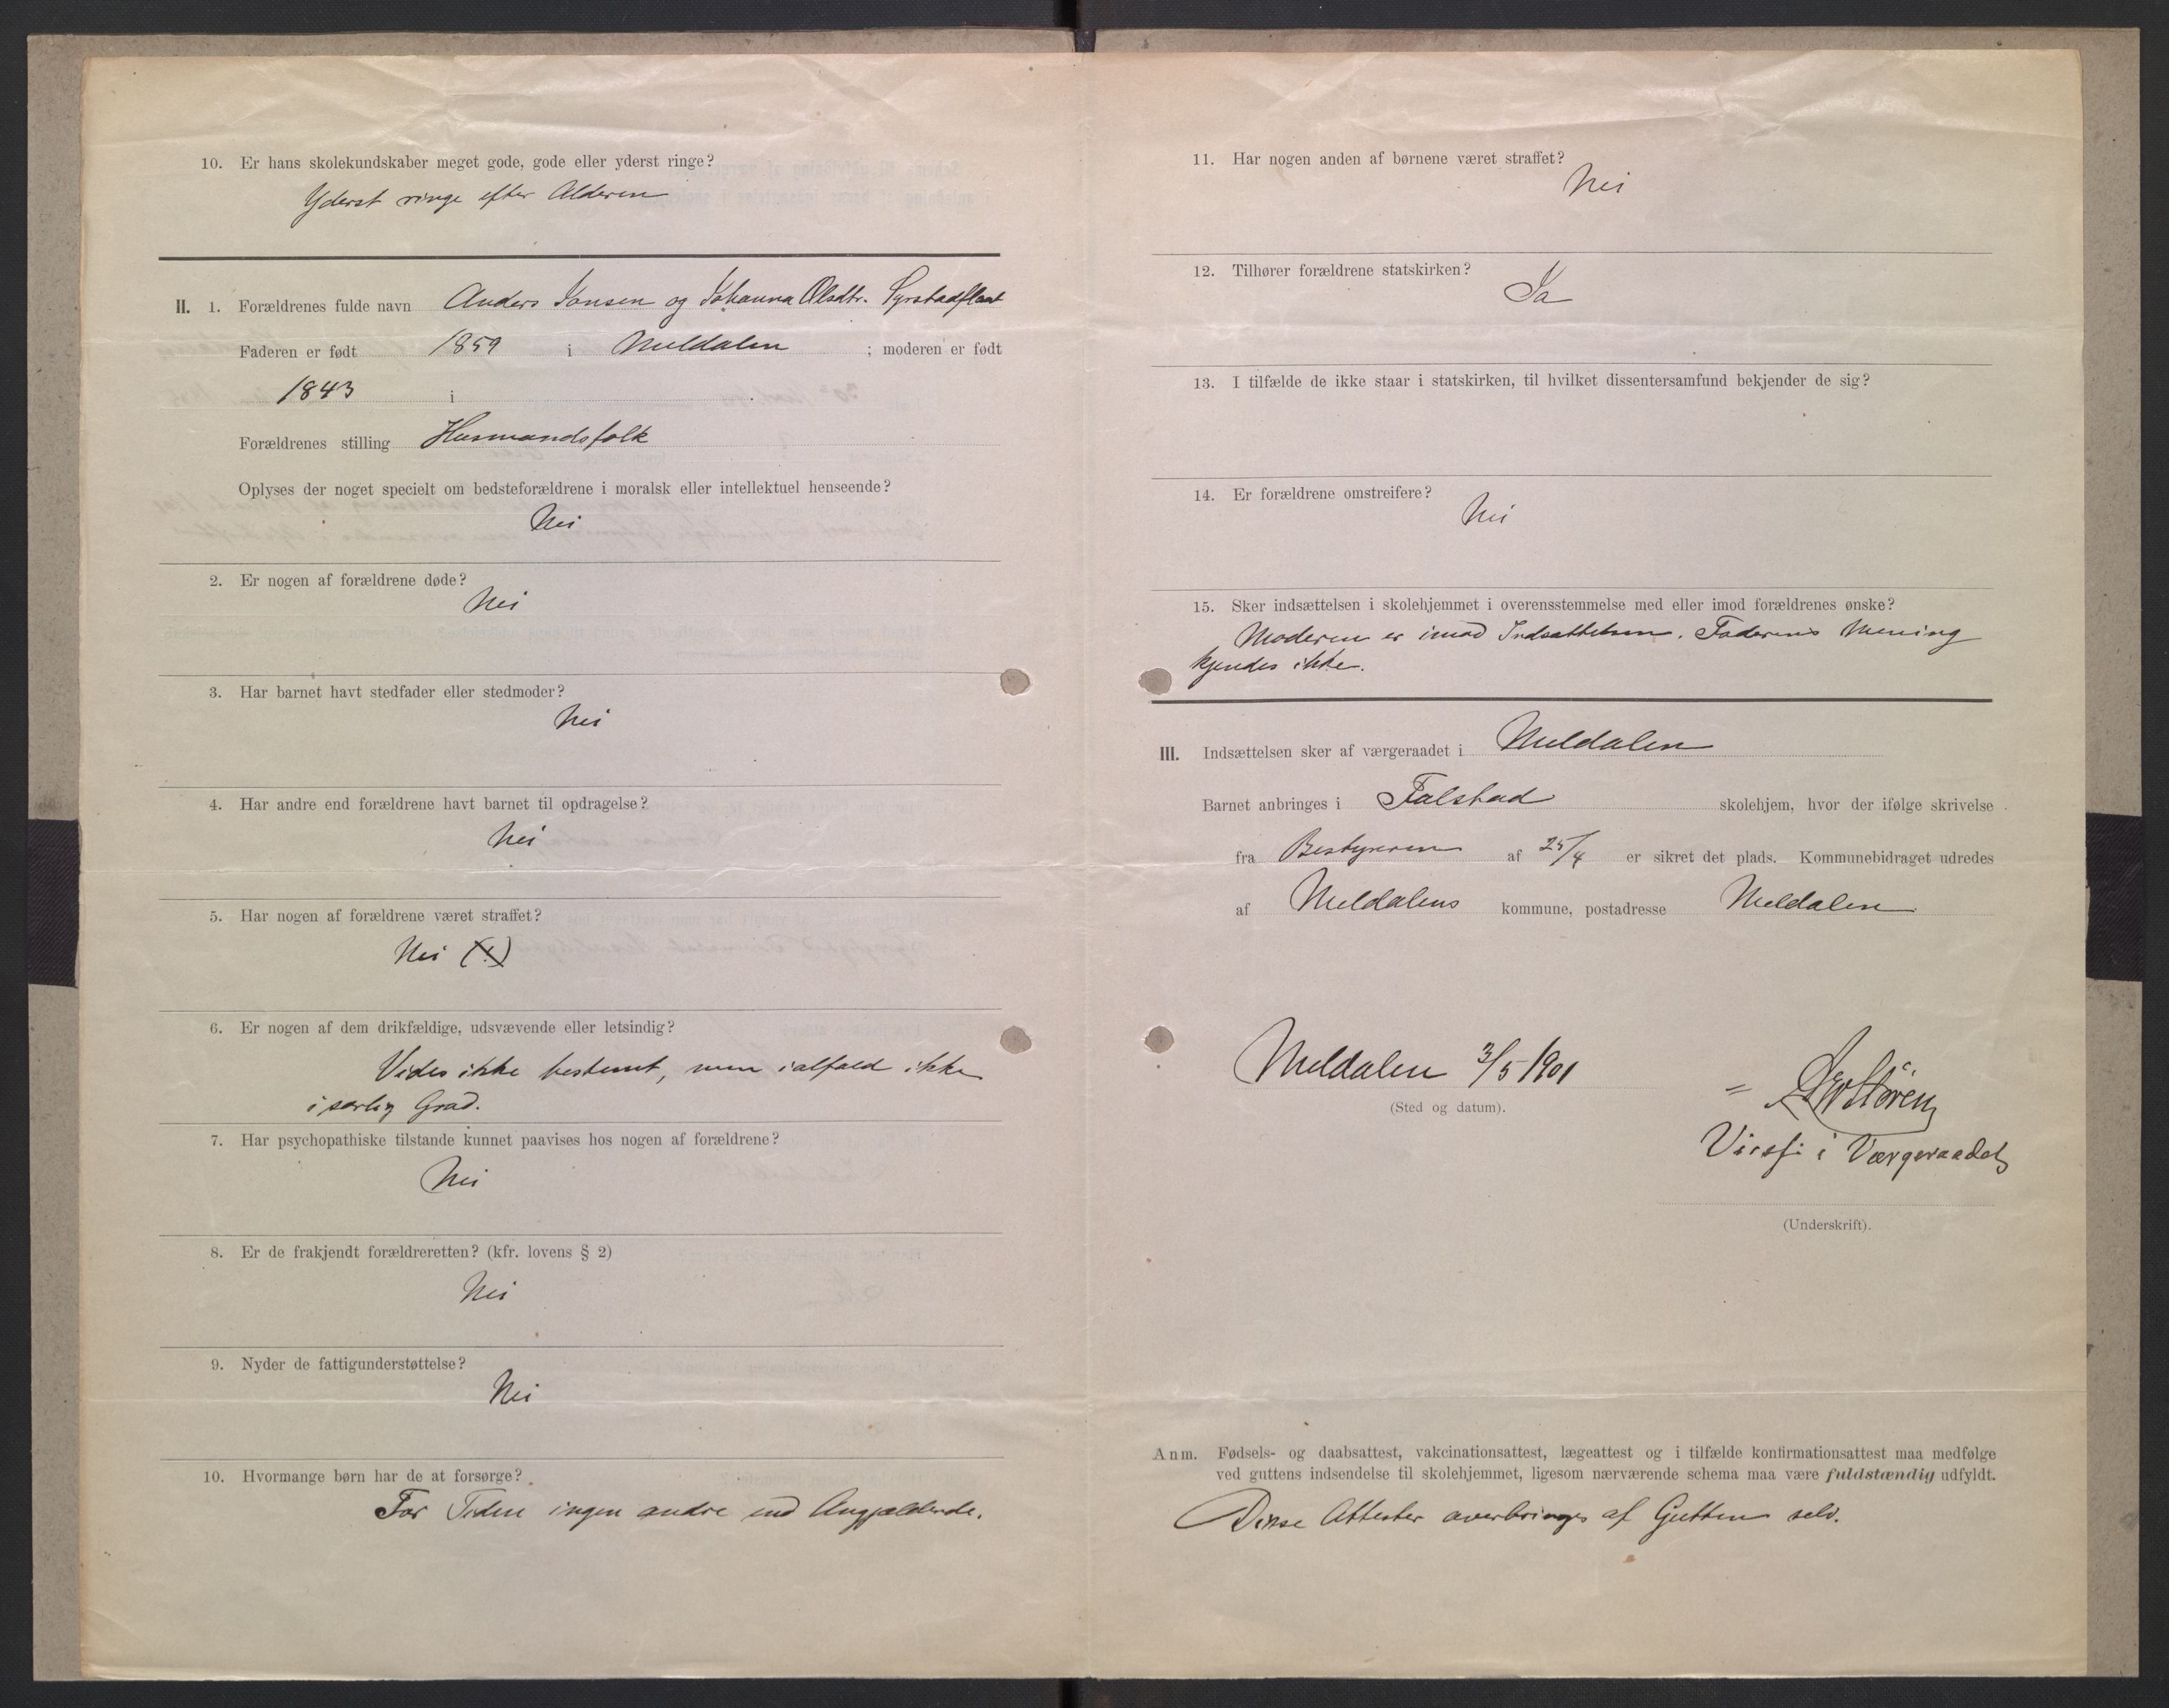 10. Er hans skolekundskaber meget gode, gode eller yderst ringe?
Yderst ringe efter Alderen
II. 1. Forældrenes fulde navn Anders Jonsen og Johanna Olsdtr. Syrstadflaat
Faderen er født 1859 i Meldalen ; moderen er født
1843 i
Forældrenes stilling Husmandsfolk
Oplyses der noget specielt om bedsteforældrene i moralsk eller intellektuel henseende?
Nei
2. Er nogen af forældrene døde?
Nei
3. Har barnet havt stedfader eller stedmoder?
Nei
4. Har andre end forældrene havt barnet til opdragelse?
Nei
5. Har nogen af forældrene været straffet?
Nei
6. Er nogen af dem drikfældige, udsvævende eller letsindig?
Vides ikke bestemt, men ialfald ikke
i særlig Grad.
7. Har psychopathiske tilstande kunnet paavises hos nogen af forældrene?
Nei
8. Er de frakjendt forældreretten? (kfr. lovens § 2)
Nei
9. Nyder de fattigunderstøttelse?
Nei
10. Hvormange børn har de at forsørge?
For Tiden ingen andre end Angjældende.
11. Har nogen anden af børnene været straffet?
Nei
12. Tilhører forældrene statskirken?
Ja
13. I tilfælde de ikke staar i statskirken, til hvilket dissentersamfund bekjender de sig?
14. Er forældrene omstreifere?
Nei
15. Sker indsættelsen i skolehjemmet i overensstemmelse med eller imod forældrenes ønske?
Moderen er imod Indsættelsen. Faderens Mening
kjendes ikke.
III. Indsættelsen sker af værgeraadet i Meldalen
Barnet anbringes i Falstad skolehjem, hvor der ifølge skrivelse
fra Bestyreren af 25/4 er sikret det plads. Kommunebidraget udredes
af Meldalens kommune, postadresse Meldalen
Meldalen 3/5 1901
(Sted og datum).
Støren
Viesf. i Værgeraadet
(Underskrift).
Anm. Fødsels- og daabsattest, vakcinationsattest, lægeattest og i tilfælde konfirmationsattest maa medfølge
ved guttens indsendelse til skolehjemmet, ligesom nærværende schema maa være fuldstændig udfyldt.
Disse Attester overbringes af Gutten selv.